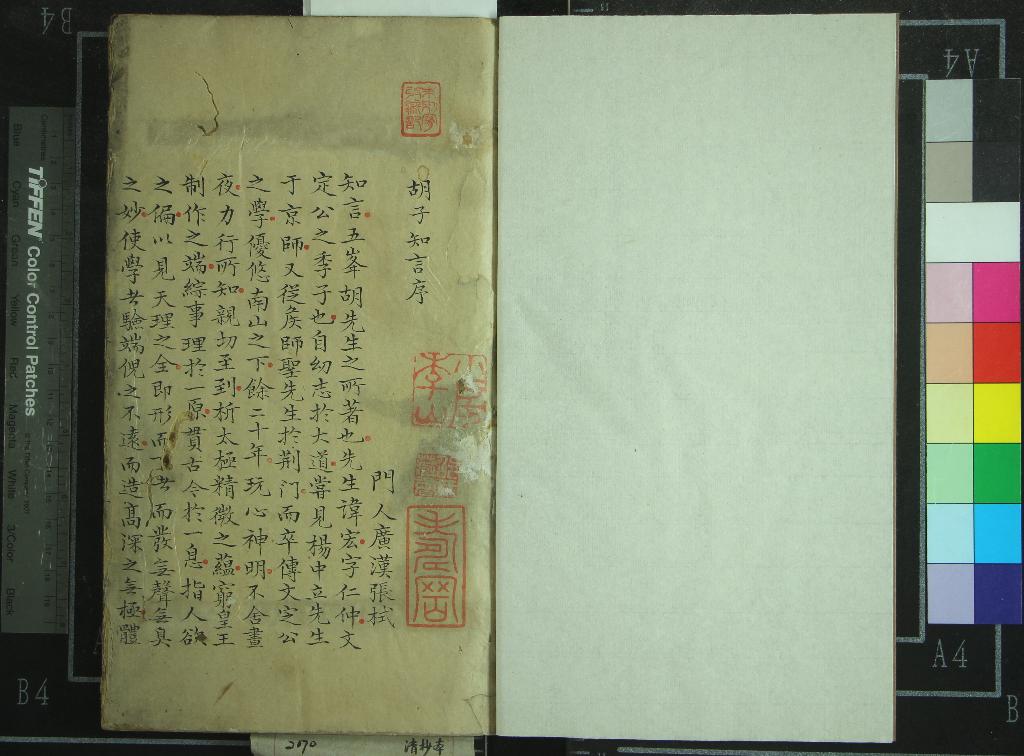 胡子知言序
門人廣漢張栻
知言五峯胡先生之所著也先生諱宏字仁仲文
定公之季子也自幼志於大道嘗見楊中立先生
于京師又從矦師聖先生於荆门而卒傳文定公
之學優悠南山之下餘二十年玩心神明不舍晝
夜力行所知親切至到析太極精微之蘊窮皇王
制作之端綜事理於一原貫古今於一息指人欲
之偏以見天理之全即形而下者而發無聲無臭
之妙使學者驗端倪之不遠而造高深之無極體
TIFFEN Color Control Patches
Blue Cyan Green Yellow Red Magenta White 3/Color Black
Centimetres
B4
A4
A4
B4
B
2170
清抄本